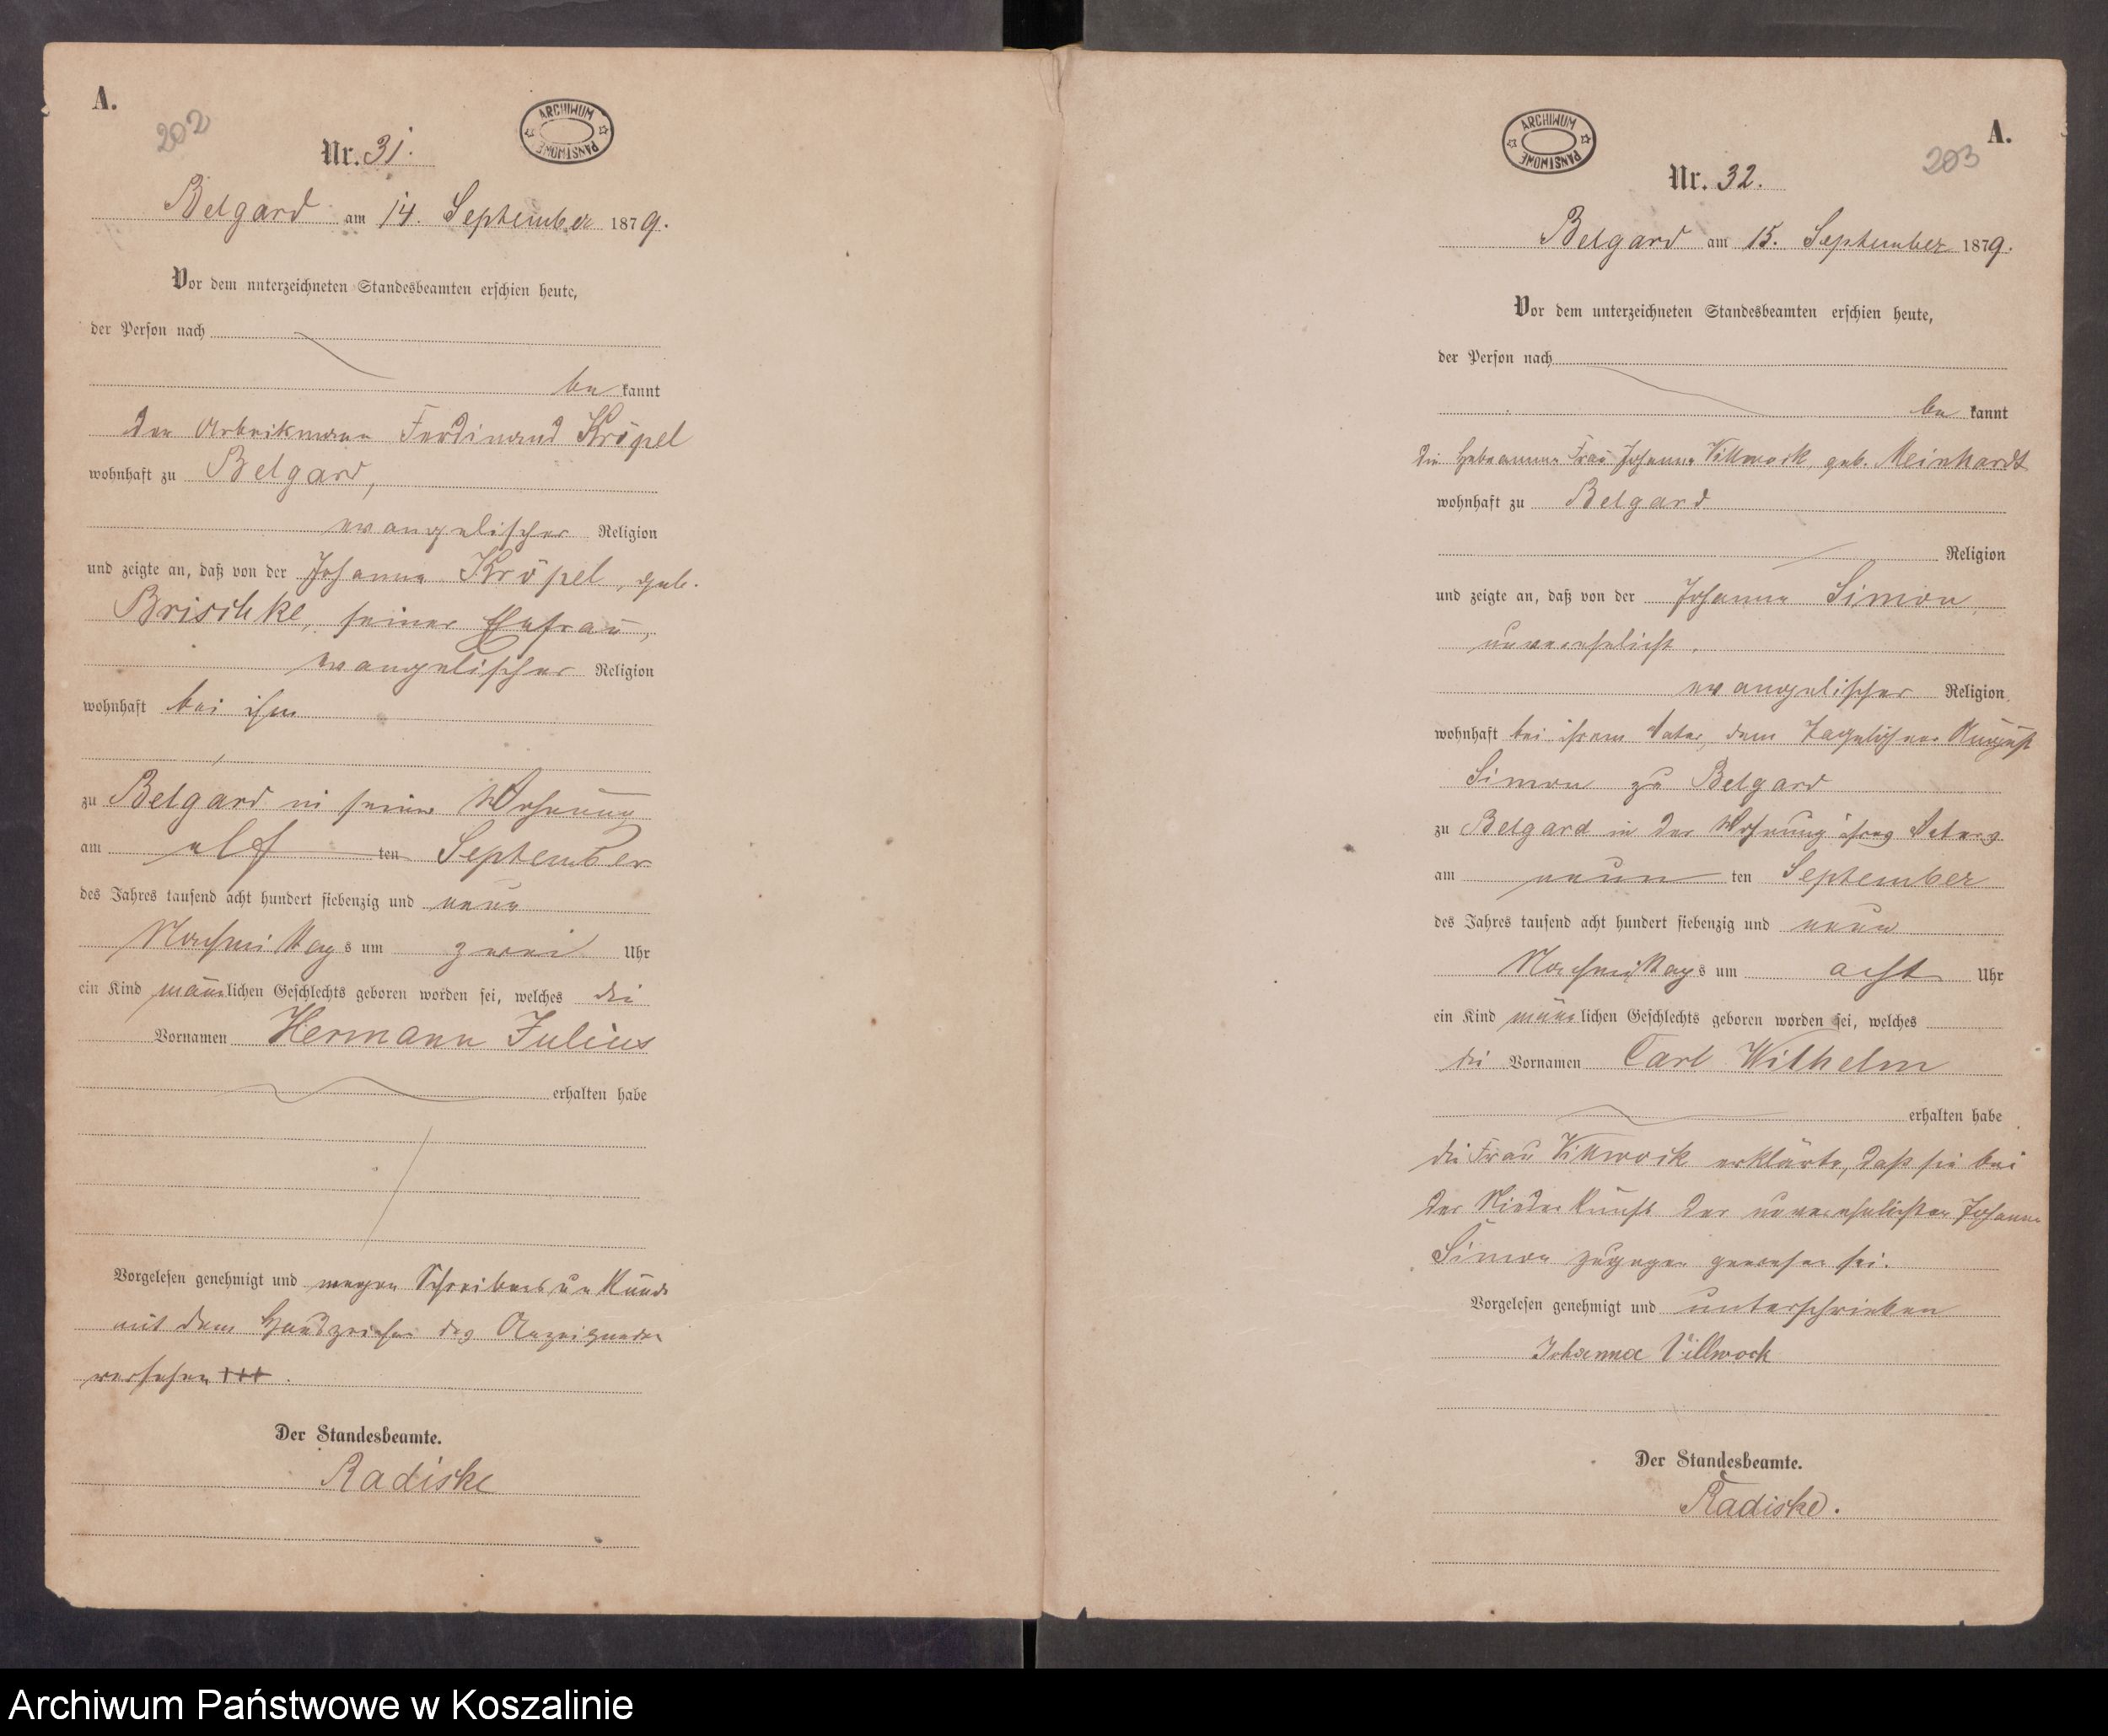 A.
202
ARCHIWUM PAŃSTWOWE
Nr. 31.
Belgard am 14. September 1879.
Vor dem unterzeichneten Standesbeamten erschien heute,
der Person nach
bekannt
der Arbeitsmann Ferdinand Kröpel
wohnhaft zu Belgard,
evangelischer Religion
und zeigte an, daß von der Johanna Kröpel, geb.
Brischke, seiner Ehefrau,
evangelischer Religion
wohnhaft bei ihm
zu Belgard in seiner Wohnung
am elf ten September
des Jahres tausend acht hundert siebenzig und neun
Nachmittags um zwei Uhr
ein Kind männlichen Geschlechts geboren worden sei, welches die
Vornamen Hermann Julius
erhalten habe
Vorgelesen genehmigt und wegen Schreibensunkunde
mit dem Handzeichen des Anzeigenden
versehen +++.
Der Standesbeamte.
Radiske
ARCHIWUM PAŃSTWOWE
A.
203
Nr. 32.
Belgard am 15. September 1879.
Vor dem unterzeichneten Standesbeamten erschien heute,
der Person nach
bekannt
die Hebeamme Frau Johanna Villwock, geb. Meinhardt
wohnhaft zu Belgard
Religion
und zeigte an, daß von der Johanna Simon,
unverehelicht,
evangelischer Religion
wohnhaft bei ihrem Vater, dem Tagelöhner August
Simon zu Belgard
zu Belgard in der Wohnung ihres Vaters
am neun ten September
des Jahres tausend acht hundert siebenzig und neun
Nachmittags um acht Uhr
ein Kind männlichen Geschlechts geboren worden sei, welches
die Vornamen Carl Wilhelm
erhalten habe
die Frau Villwock erklärte, daß sie bei
der Niederkunft der unverehelichten Johanna
Simon zugegen gewesen sei.
Vorgelesen genehmigt und unterschrieben
Johanna Villwock
Der Standesbeamte.
Radiske.
Archiwum Państwowe w Koszalinie